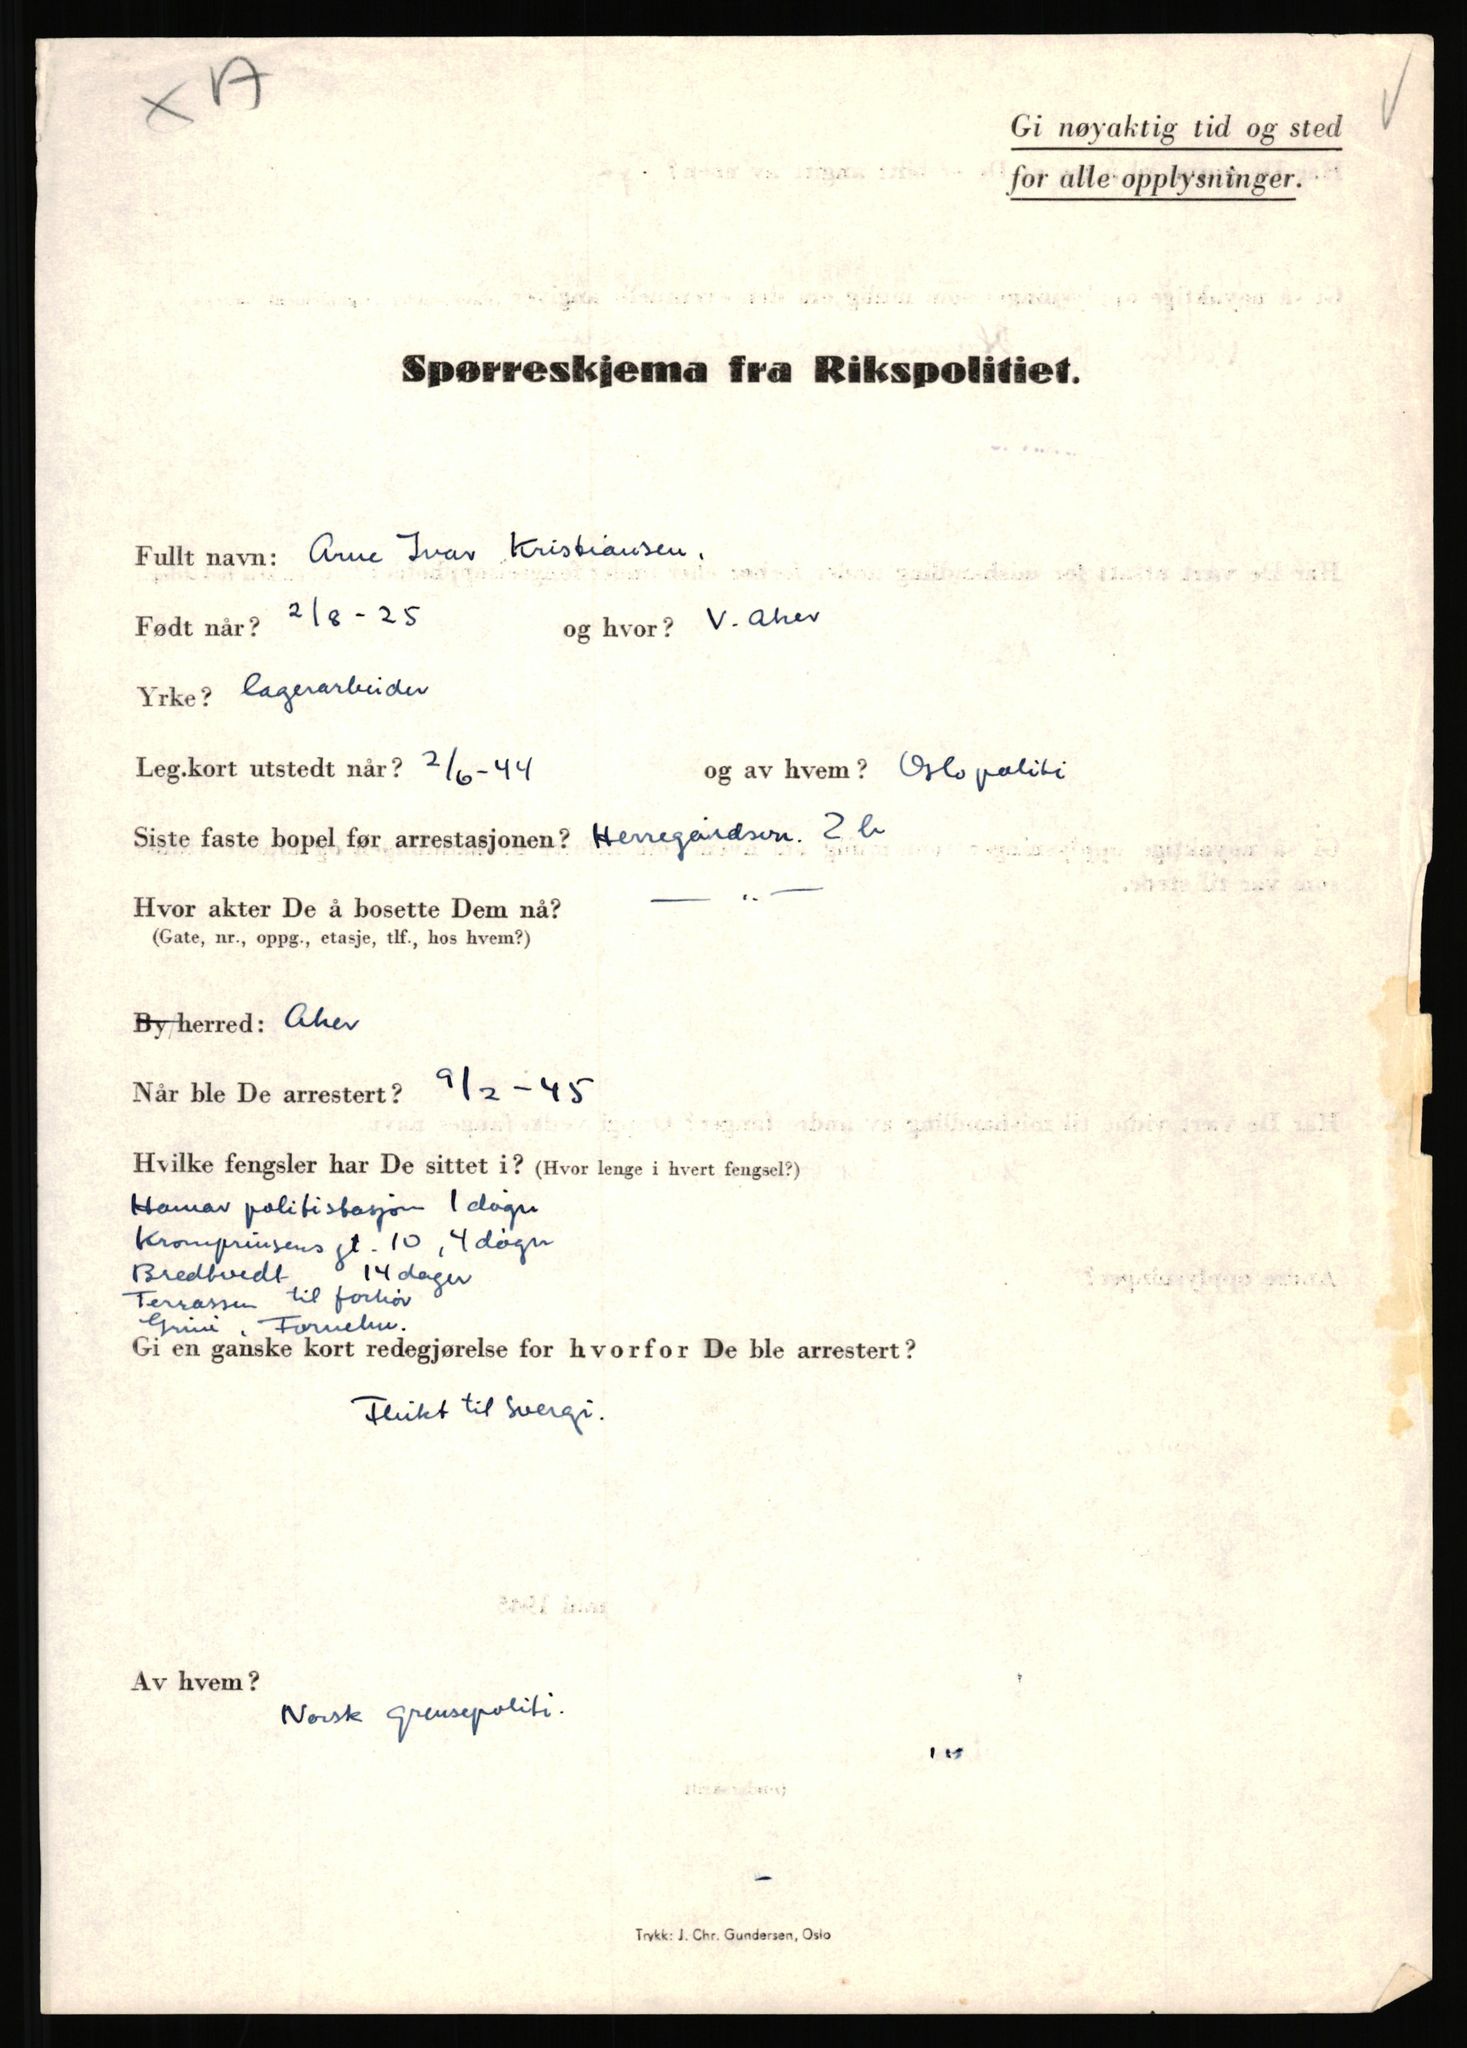 X A
Gi nøyaktig tid og sted
for alle opplysninger.
Spørreskjema fra Rikspolitiet.
Fullt navn: Arne Ivar Kristiansen.
Født når? 2/8 - 25 og hvor? V. Aker
Yrke? lagerarbeider
Leg.kort utstedt når? 2/6 - 44 og av hvem? Oslo politi
Siste faste bopel før arrestasjonen? Herregårdsvn. 2 b
Hvor akter De å bosette Dem nå? — „ —
(Gate, nr., oppg., etasje, tlf., hos hvem?)
By/herred: Aker
Når ble De arrestert? 9/2 - 45
Hvilke fengsler har De sittet i? (Hvor lenge i hvert fengsel?)
Hamar politistasjon 1 døgn
Kronprinsens gt. 10, 4 døgn
Bredtvedt 14 dager
Terrassen til forhør
Grini, Fornebu.
Gi en ganske kort redegjørelse for hvorfor De ble arrestert?
Flukt til Svergi.
Av hvem?
Norsk grensepoliti.
Trykk: J. Chr. Gundersen, Oslo